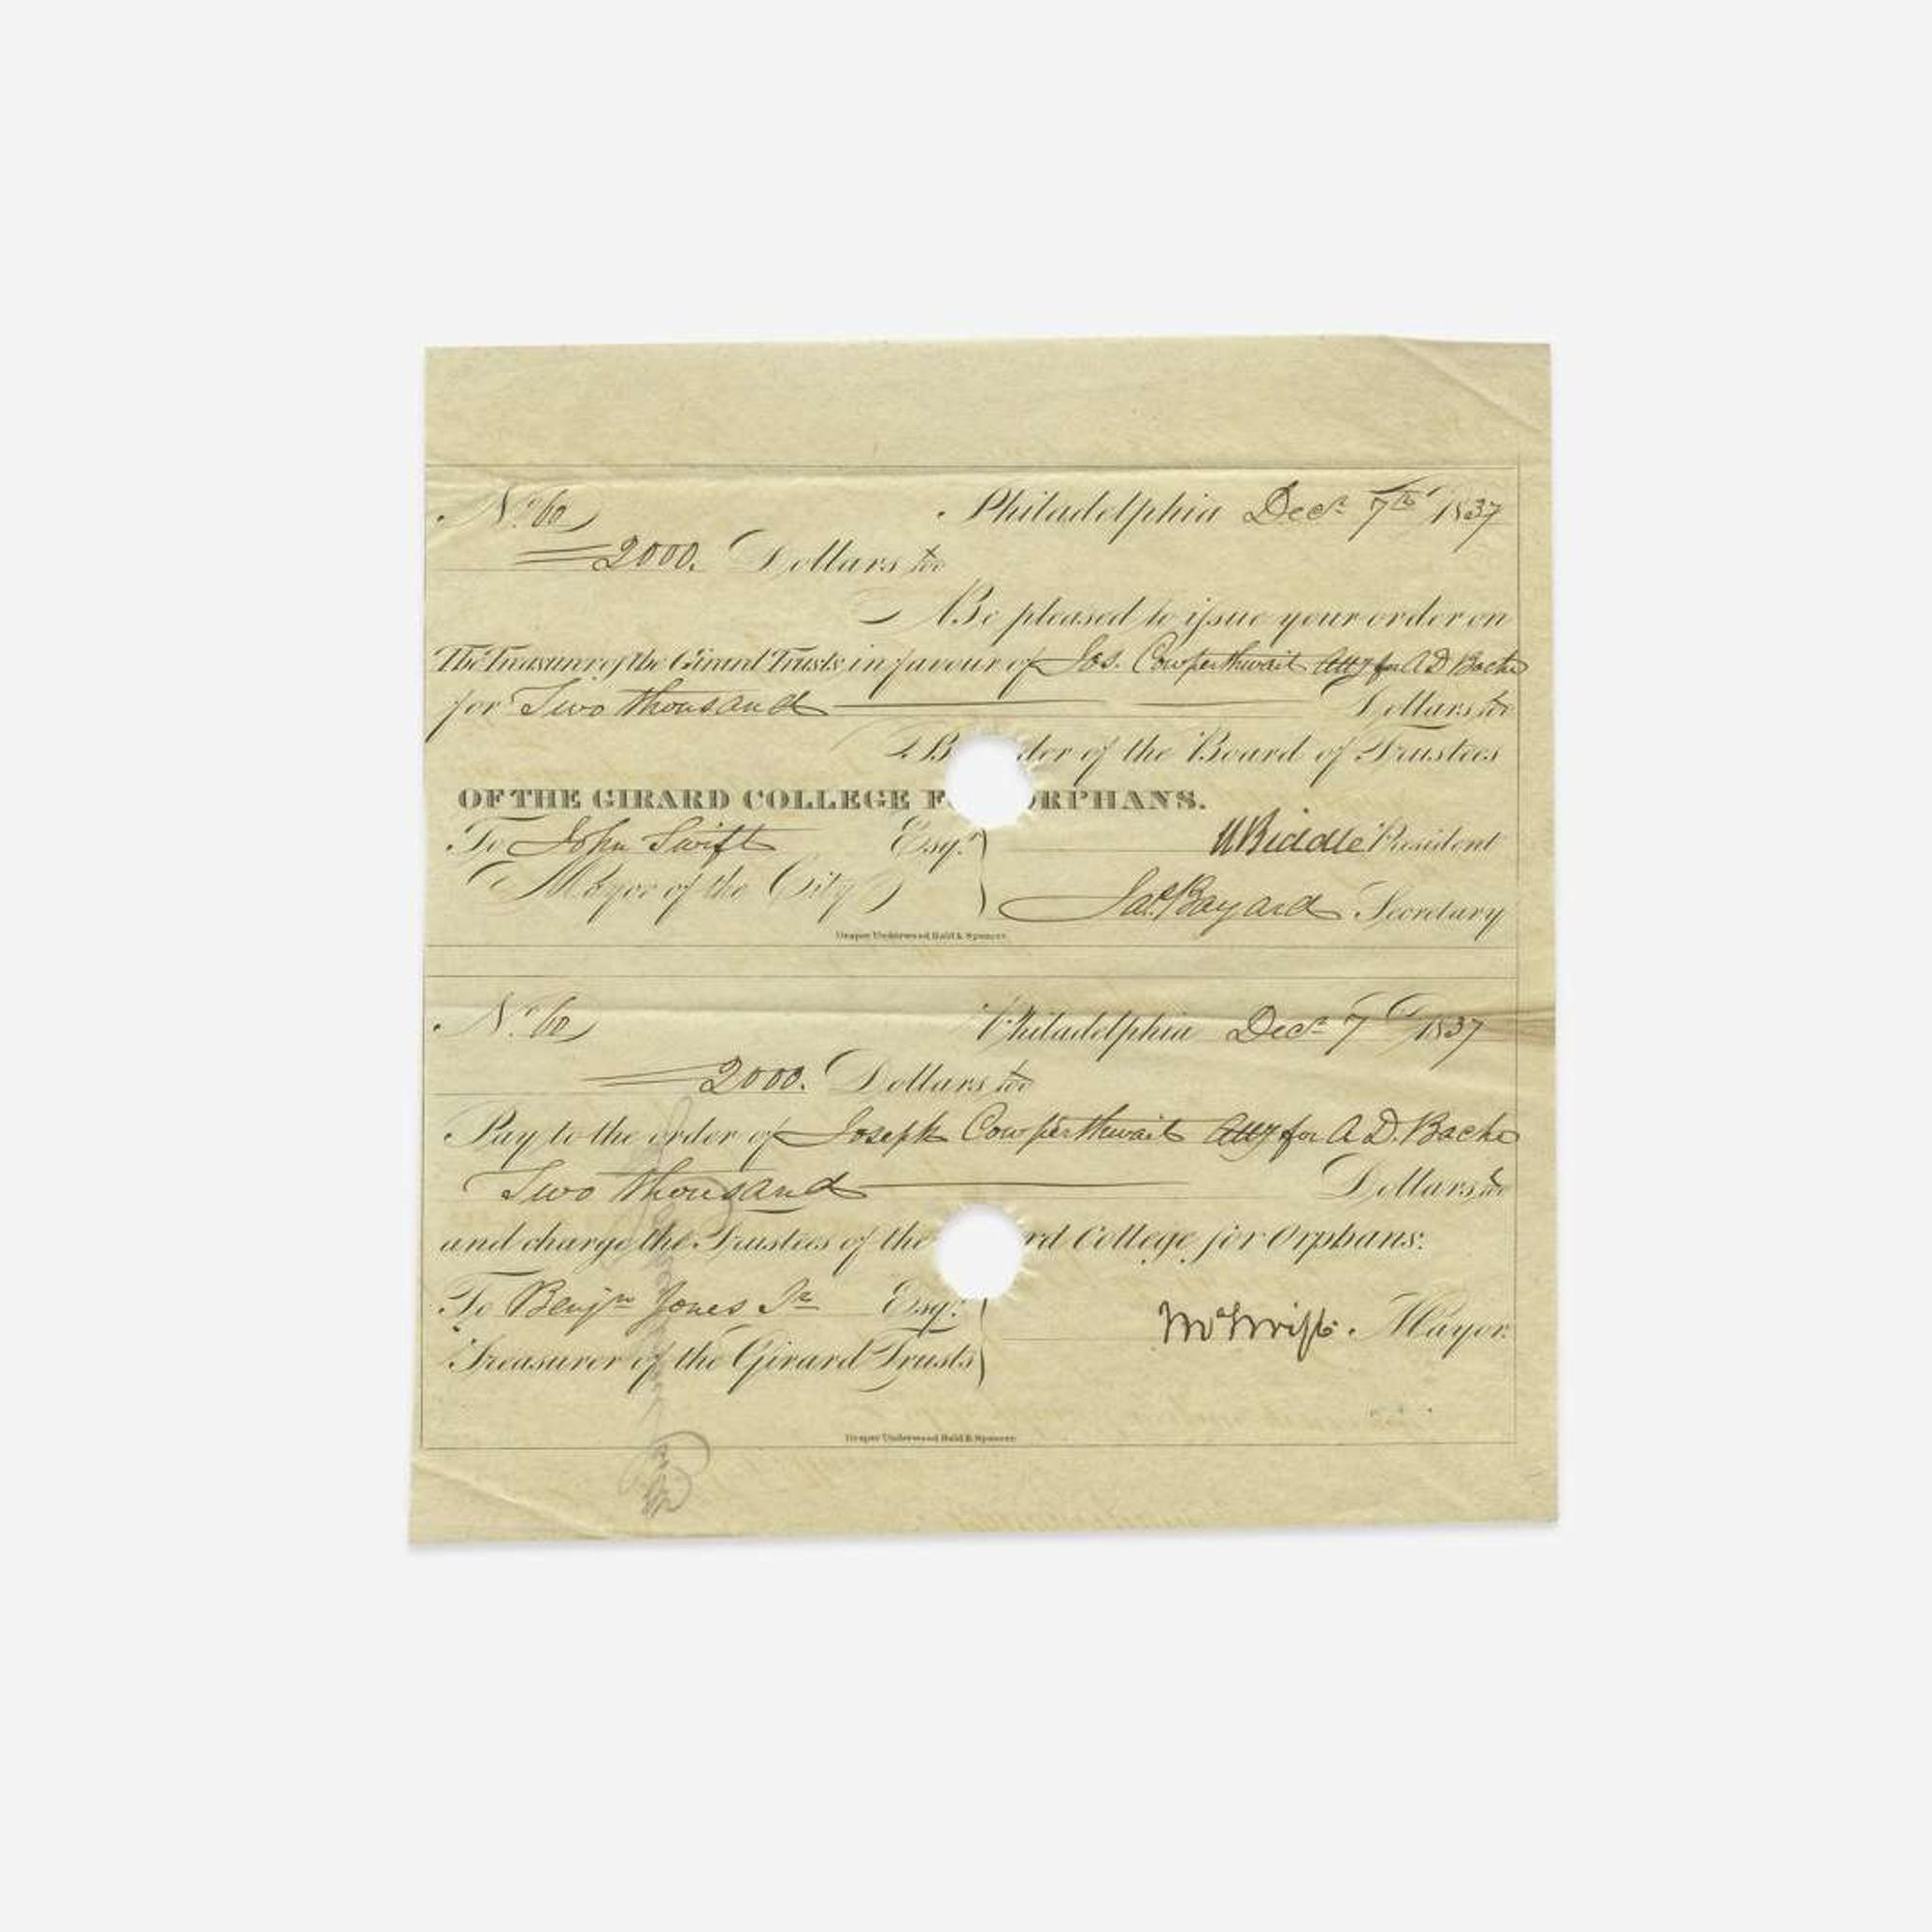 No. 60 Philadelphia Decr. 7th 1837
2000. Dollars
Be pleased to issue your order on
The Treasurer of the Girard Trusts in favour of Jos. Cowperthwait Atty for A D Bache
for Two thousand Dollars
der of the Board of Trustees
OF THE GIRARD COLLEGE F RPHANS.
To John Swift Esqr. N Biddle President
Mayor of the City Jas. Bayard Secretary
Draper Underwood Bald & Spencer
No. 60 Philadelphia Decr. 7th 1837
2000. Dollars
Pay to the order of Joseph Cowperthwait Atty for A. D. Bache
Two thousand Dollars
and charge the Trustees of the rd College for Orphans.
To Benjn Jones Jr Esqr. Mayor.
Treasurer of the Girard Trusts
Draper Underwood Bald & Spencer